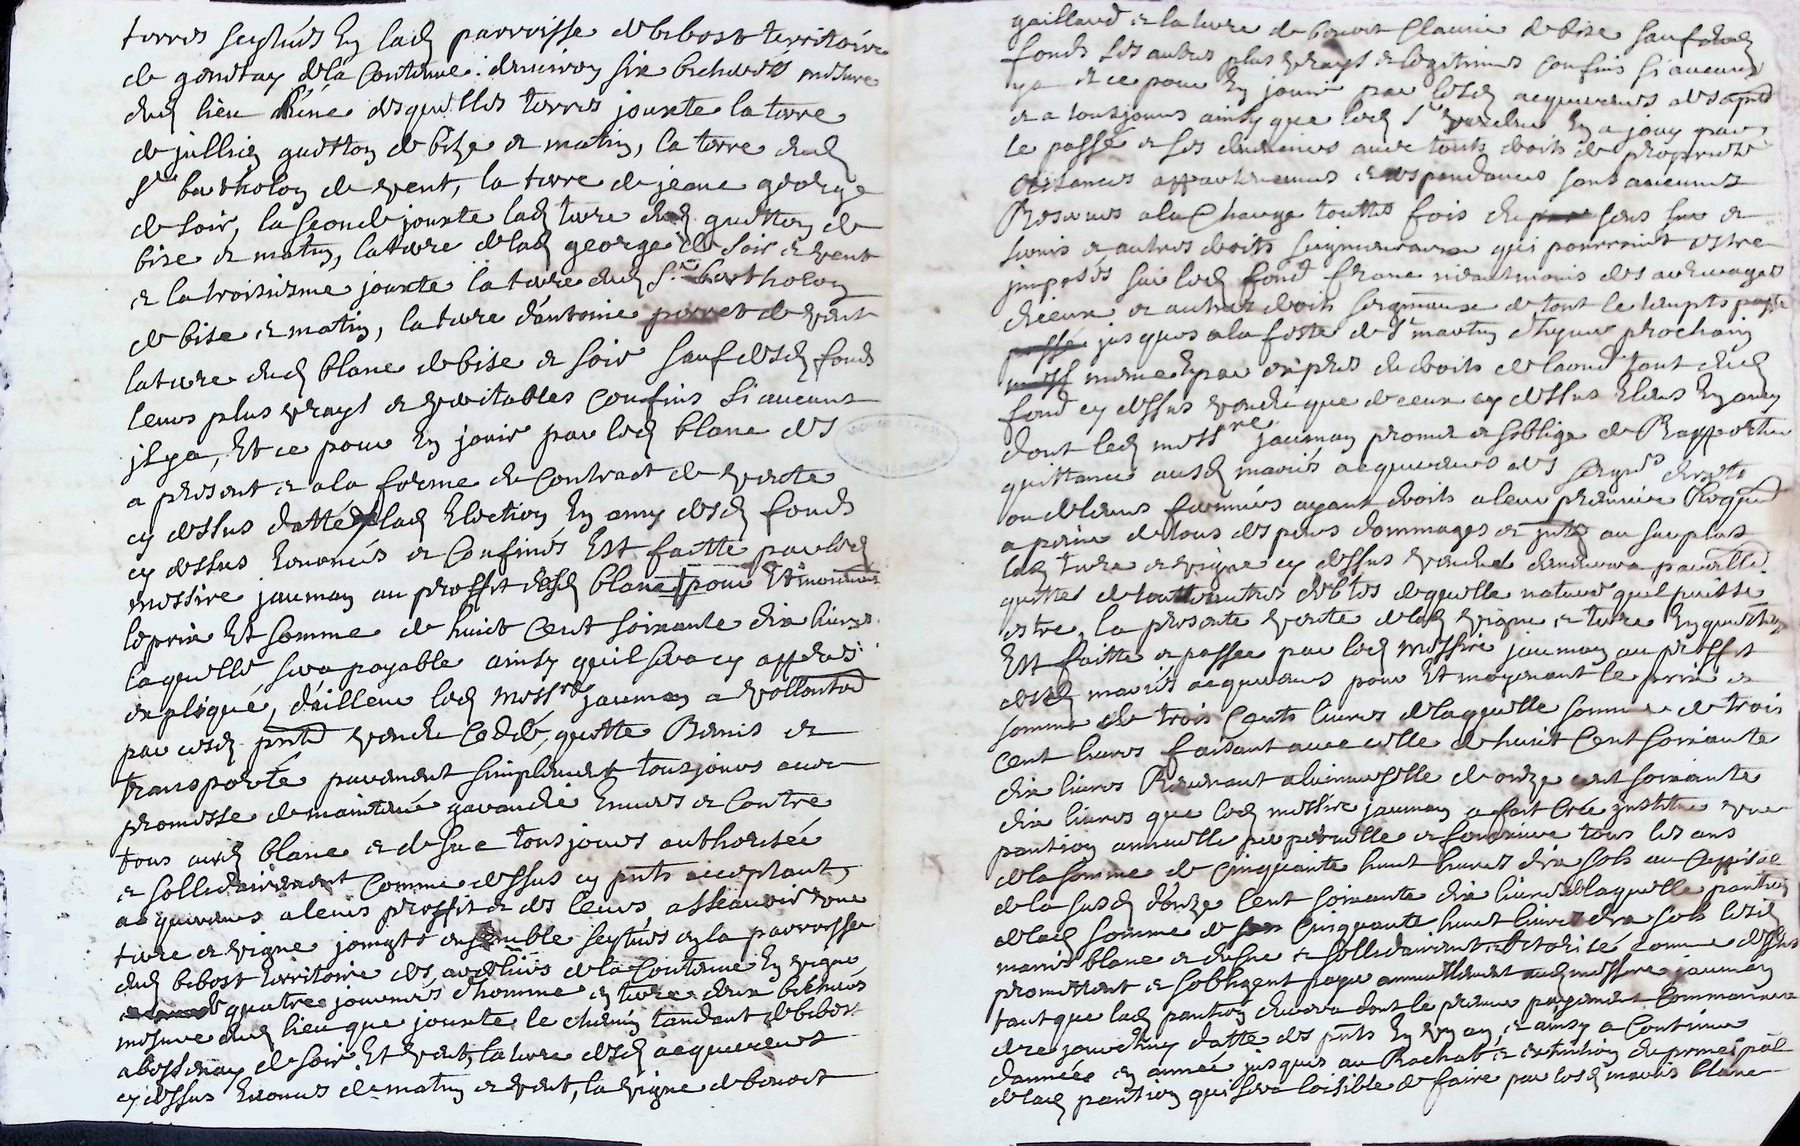 terres scytués en lad parroisse de bibost territoire
de gonttay de la Contenue denviron six bicherées mesure
dud lieu lune desquelles terres jouxte la terre
de jullien guetton de bize et matin, la terre dud
Sr bartholon de vent, la terre de jeane george
de soir, la seconde jouxte lad terre dud guetton de
bise et matin, la terre de lad george de soir et vent
et la troisiesme jouxte la terre dud Sr bertholon
de bise et matin, la terre dantoine de vent
la terre dud blanc de bise et soir sauf desd fonds
leurs plus vrays et veritables Confins si aucuns
jl y a, Et ce pour En jouir par led blanc dés
a present et a la forme du Contract de vente
cy dessus datté lad Election En amy desd fonds
cy dessus Enoncés et Confinés Est faitte par led
messire jauman au proffit desd blanc pour Et moiennant
le prix Et somme de huict Cent soixante dix livres
laquelle sera payable ainsy quil sera cy apprés
expliqué, dailleur led messre jauman a vollonté
par cesd pntes vendu Ceddé, quitte Remis et
transporté purement simplement tousjours avec
promesse de maintenir garandir Envers et Contre
tous aud blanc et desue tousjours authorisée
et sollidairement Comme dessus cy pnts acceptants
acquereurs a leurs proffit et des leurs, asscavoir une
terre et vigne joingts ensemble scytués en la parroisse
dud bibost territoire des de la Contenue En vigne
quatre journées dhomme et terre deux bicherées
mesure dud lieu que jouxte le chemin tendant de bibost
a bessenay de soir Et vent, la terre desd acquereurs
cy dessus Enoncés de matin et vent, la vigne de benoit
gaillard et la terre de benoit Claude de bise sauf dud
fonds ses autres plus vrays et legitimes confins si aucuns
y a et ce pour En jouir par lesd acquereurs des a pnt
et a tousjours ainsy que led Sr vendeur En a jouy par
le passé et ses devanciers avec touts droits de propriette
aisances appartenances et despendances sans aucunes
Reserves a la Charge touttes fois du sens sur et
servis et autres droits seigneuriaux qui pourroint estre
jmposés sur led fond franc neantmoins des arrerages
diceux et autres droits seigneuriaux de tout le temps passé
jusques a la feste de St martin dhyver prochain
mesme En par exprés du droits de laond tant dud
fond cy dessus vendu que de ceux cy dessus Eleus En amy
dont led messre jauman promet et soblige de Rapporter
quittance ausd mariés acquereurs des seigrs directs
ou de leurs fermiers ayant droits a leur premiere Requon
a peine de tous despens dommages et jnts au surplus
lad terre et vigne cy dessus vendue demeurera pareille
quitte de touttes autres debtes de quelle nature quel puisse
estre, la presente vente de lad vigne et terre En question
Est faitte et passee par led messire jauman au proffit
desd mariés acquereurs pour Et moyenant le prix et
somme de trois Cents livres de laquelle somme de trois
Cent livres faisant avec celle de huict Cent soixante
dix livres Revenant a luniverselle de onze cent soixante
dix livres que led messire jauman a fait Cree jnstitue une
pantion annuelle perpetuelle et fonciere tous les ans
de la somme de Cinquante huict livres dix sols au Cappital
de la susd donze Cent soixante dix livres de laquelle pantion
de lad somme de Cinquante huict livres dix sols lesd
mariés blanc et desue et sollidairement autorisée comme dessus
promettent et sobligent payer annuellement aud messire jauman
tant que lad pantion durera dont le premier payement Commancera
dire jourdhuy datte des pnts En un an, et ainsy a Continuer
dannée en année jusques au Rachapt et extinction du principal
de lad pantion qui sera loisible de faire par lesd mariés blanc